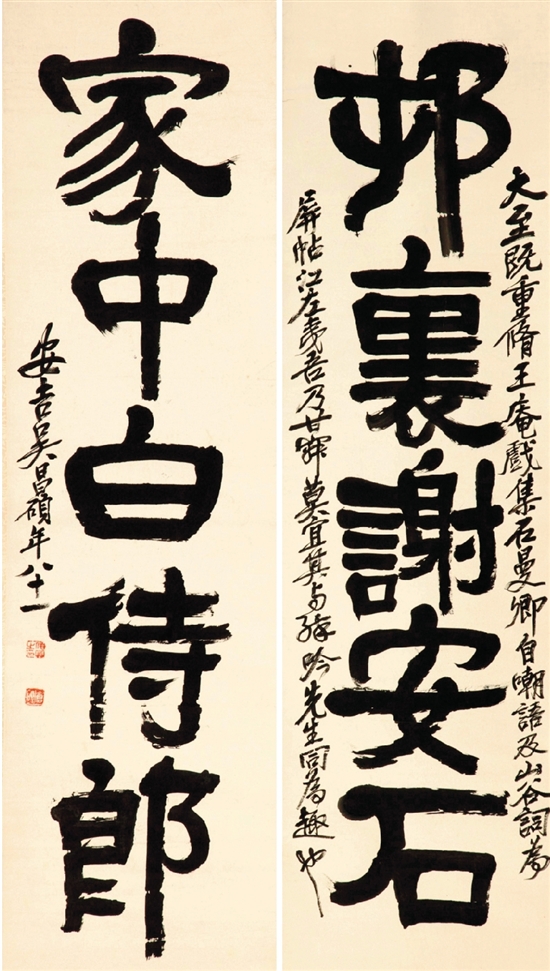 邨裏謝安石
大至既重脩王庵戲集石曼卿自嘲語及山谷詞為
屏帖江左
乃甘
莫宜
吟先生同為趣也
家中白侍郎
安吉吳昌碩年八十一